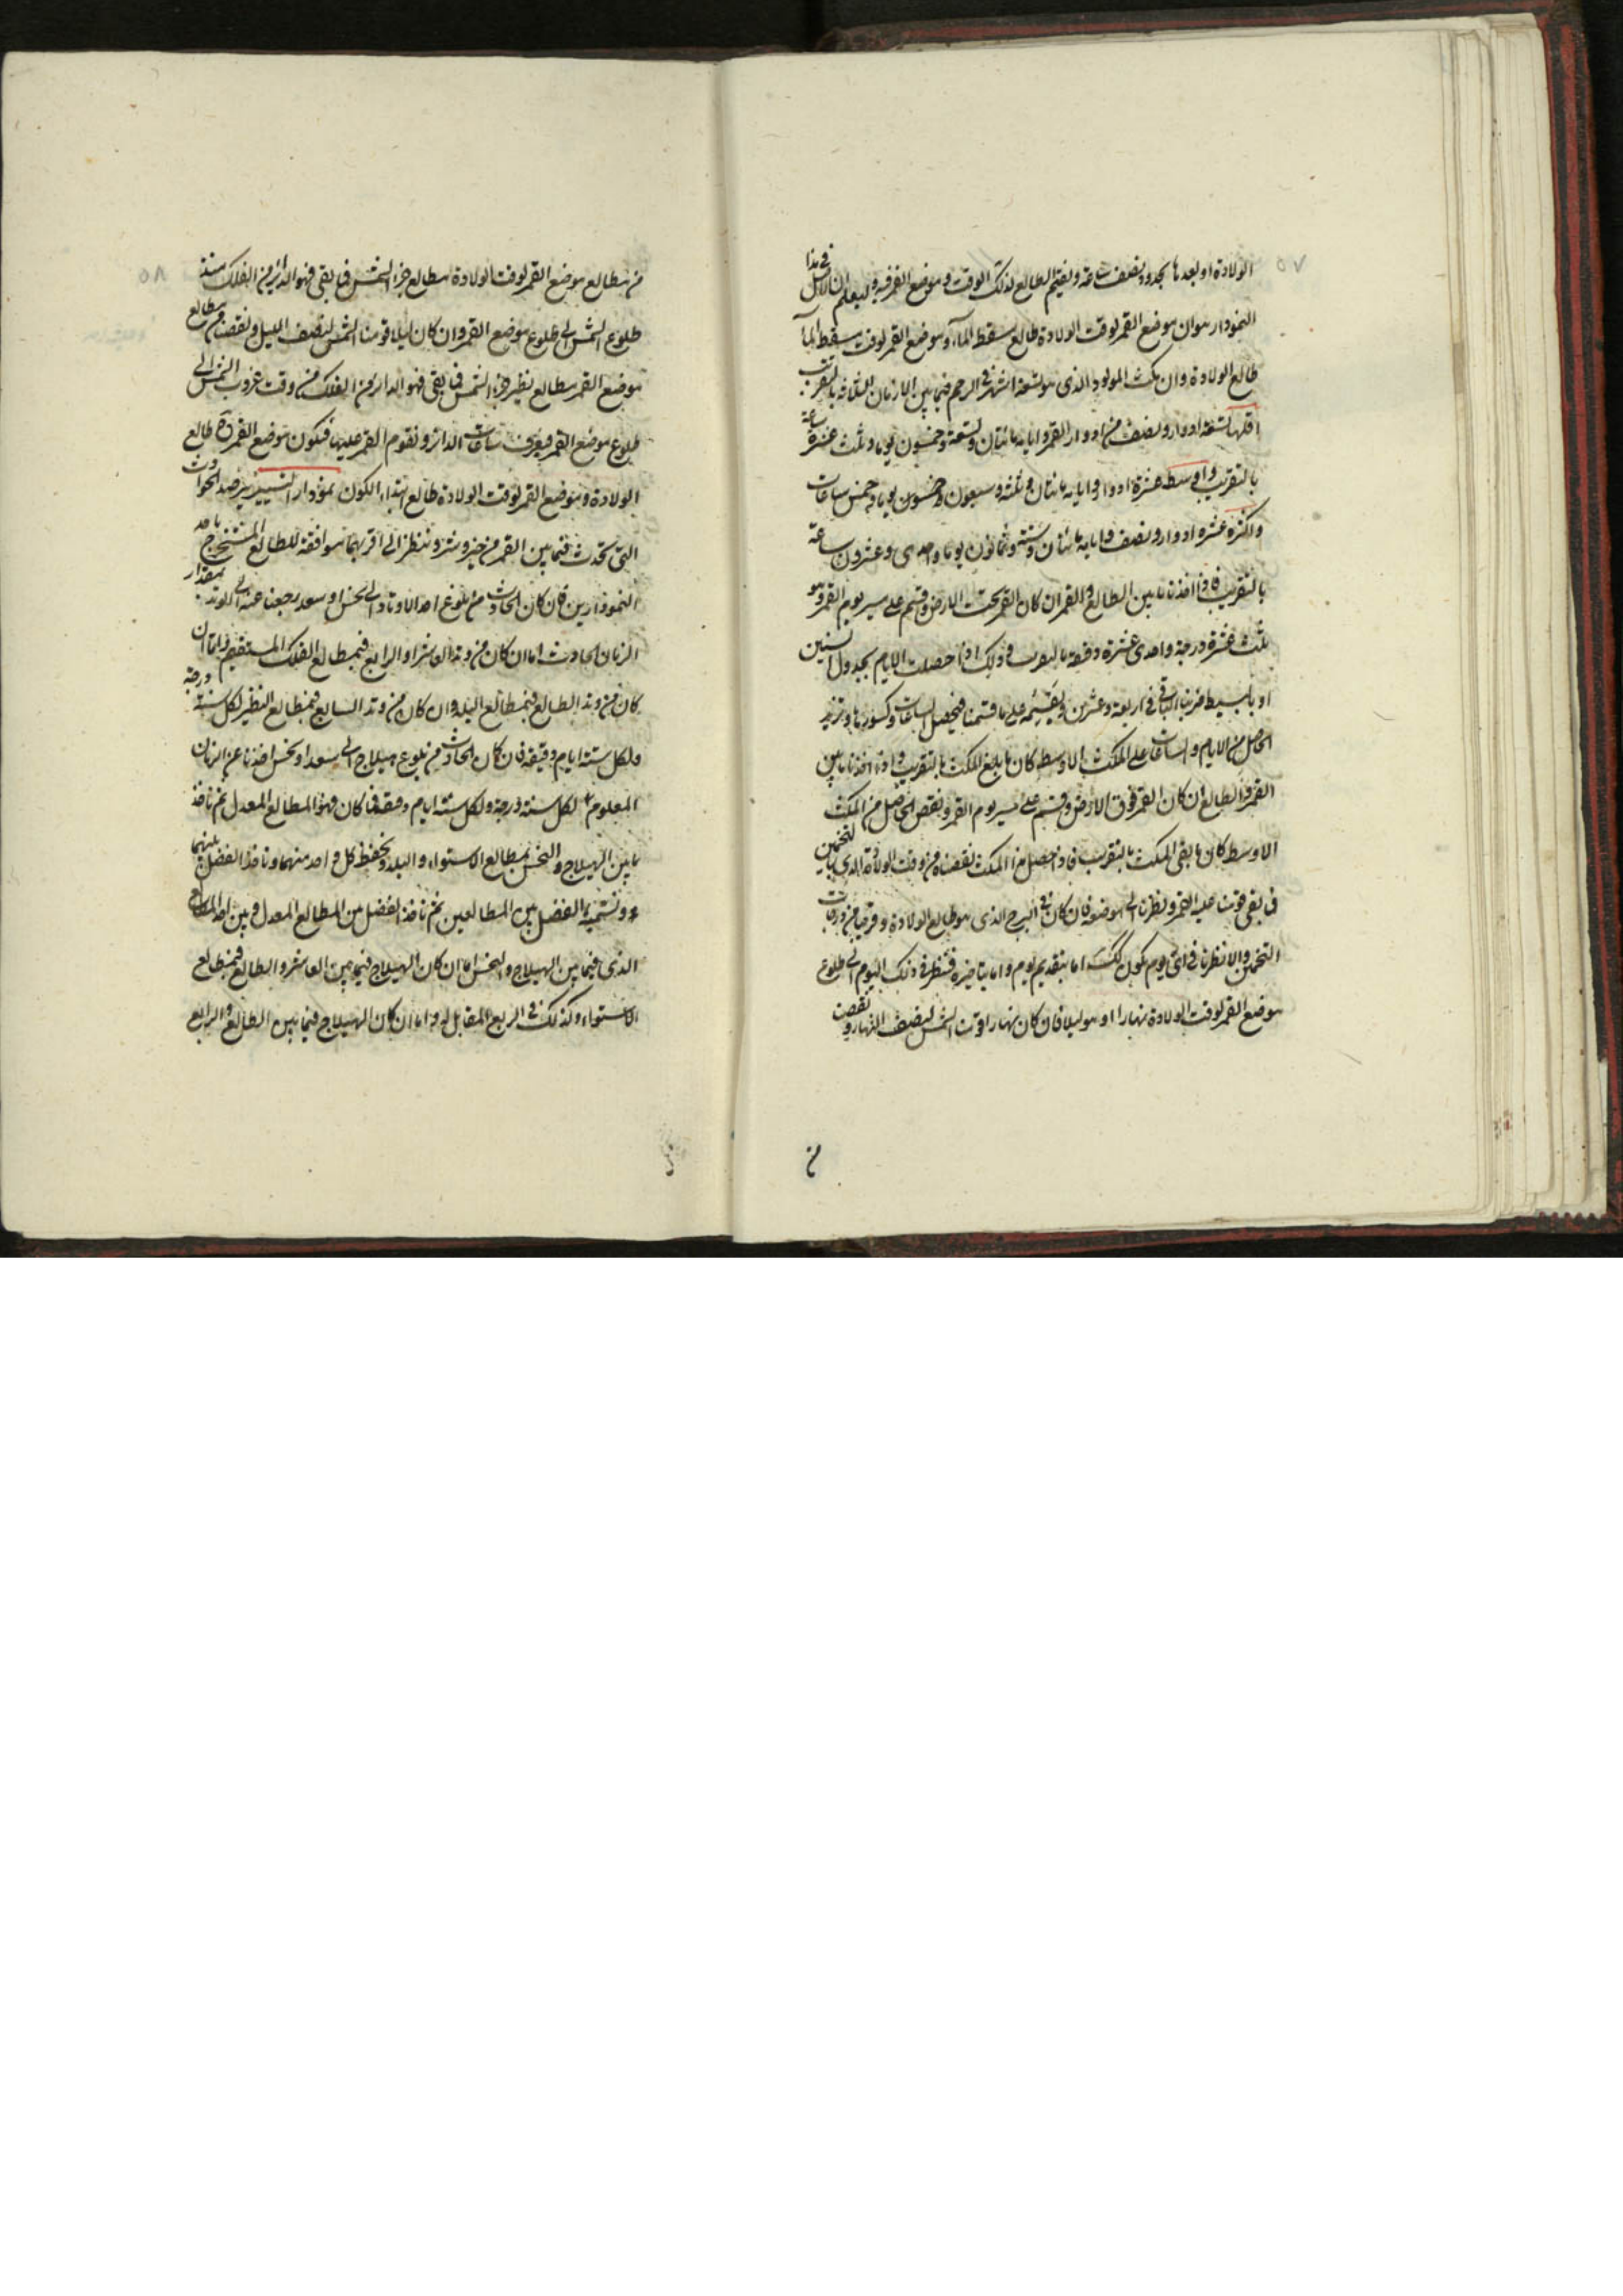 ٥٧
الولادة او بعدها بحدود نصف ساعة ونقيم الطالع لذلك الوقت وموضع القمر فيه وليعلم ان الاصل فى هذا
النمودار هو ان موضع القمر لوقت الولادة طالع سقط الماء وموضع القمر لوقت سقط الماء
طالع الولادة وان مكث المولود الذى هو لتسعة اشهر فى الرحم فيما بين الازمان الثلثة بالتقريب
اقلها تسعة ادوار ونصف من ادوار القمر وايامه مائتان وتسعة وخمسون يوما وثلث عشرة ساعة
بالتقريب واوسطه عشرة ادوار وايامه مائتان وثلثة وسبعون يوما وخمس ساعات
واكثره عشره ادوار ونصف وايامه مائتان وستة وثمانون يوما واحدى وعشرون ساعة
بالتقريب فاذا اخذنا ما بين الطالع والقمر ان كان القمر تحت الارض وقسم على مسير يوم القمر وهو
ثلث عشرة درجة واحدى عشرة دقيقة بالتقريب وذلك اذا حصلت الايام بجدول السنين
او بالبسيط ضربنا الباقى فى اربعة وعشرين ونقسمه على ما قسمنا فيحصل الساعات وكسورها ونزيد
الحاصل من الايام والساعات على المكث الاوسط كان ما بلغ المكث بالتقريب واذا اخذنا ما بين
القمر والطالع ان كان القمر فوق الارض وقسم على مسير يوم القمر ونقص الحاصل من المكث
الاوسط كان ما بقى المكث بالتقريب فاذا حصل هذا المكث نقصناه من وقت الولادة الذى بالتخمين
فما بقى قومنا عليه القمر ونظرنا الى موضعه فان كان فى البرج الذى هو طالع الولادة وقريبا من درجات
التخمين والا نظرنا فى اى يوم يكون كذلك اما بتقديم يوم واما بتاخيره فننظر فى ذلك اليوم الى طلوع
موضع القمر لوقت الولادة نهارا او هو ليلا فان كان نهارا قومنا الشمس لنصف النهار ونقصت
من
٥٨
من مطالع موضع القمر لوقت الولادة مطالع جزء الشمس فما بقى فهو الدائر من الفلك منذ
طلوع الشمس الى طلوع موضع القمر وان كان ليلا قومنا الشمس لنصف الليل ونقصنا من مطالع
موضع القمر مطالع نظير جزء الشمس فما بقى فهو الدائر من الفلك من وقت غروب الشمس الى
طلوع موضع القمر فيعرف ساعات الدائر ونقوم القمر عليها فيكون موضع القمر طالع
الولادة وموضع القمر لوقت الولادة طالع ابتداء الكون نمودار التسيير نرصد الحوادث
التى تحدث فيما بين القمر من خير وشر وننظر الى اقربهما موافقة للطالع المستخرج باحد
النموذارين فان كان الحادث من بلوغ احد الاوتاد الى نحس او سعد رجعنا عنه الى الوتد بمقدار
الزمان الحادث اما ان كان من وتد العاشر او الرابع فبمطالع الفلك المستقيم واما ان
كان من وتد الطالع فبمطالع البلد وان كان من وتد السابع فبمطالع النظير لكل سنة درجة
ولكل ستة ايام دقيقة فان كان الحادث من بلوغ هيلاج الى سعد او نحس اخذنا عن الزمان
المعلوم لكل سنة درجة ولكل ستة ايام دقيقة فما كان فهو المطالع المعدل ثم ناخذ
ما بين الهيلاج والنحس بمطالع الاستواء والبلد ونحفظ كل واحد منهما وناخذ الفضل بينهما
ونسميه الفضل بين المطالعين ثم ناخذ الفضل بين المطالع المعدل وبين احد المطالع
الذى فيما بين الهيلاج والنحس اما ان كان الهيلاج فيما بين العاشر والطالع فبمطالع
الاستواء وكذلك فى الربع المقابل له واما ان كان الهيلاج فيما بين الطالع والرابع